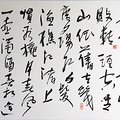 敗轉頭空青
山依舊在幾
度夕陽紅白髮
漁樵江渚上
慣看秋月春風
一壺濁酒喜相逢